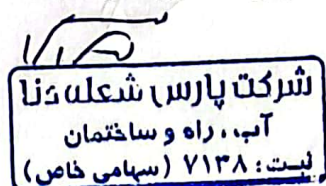 شرکت پارس شعله دنا
آب، راه و ساختمان
ثبت: ۷۱۳۸ (سهامی خاص)